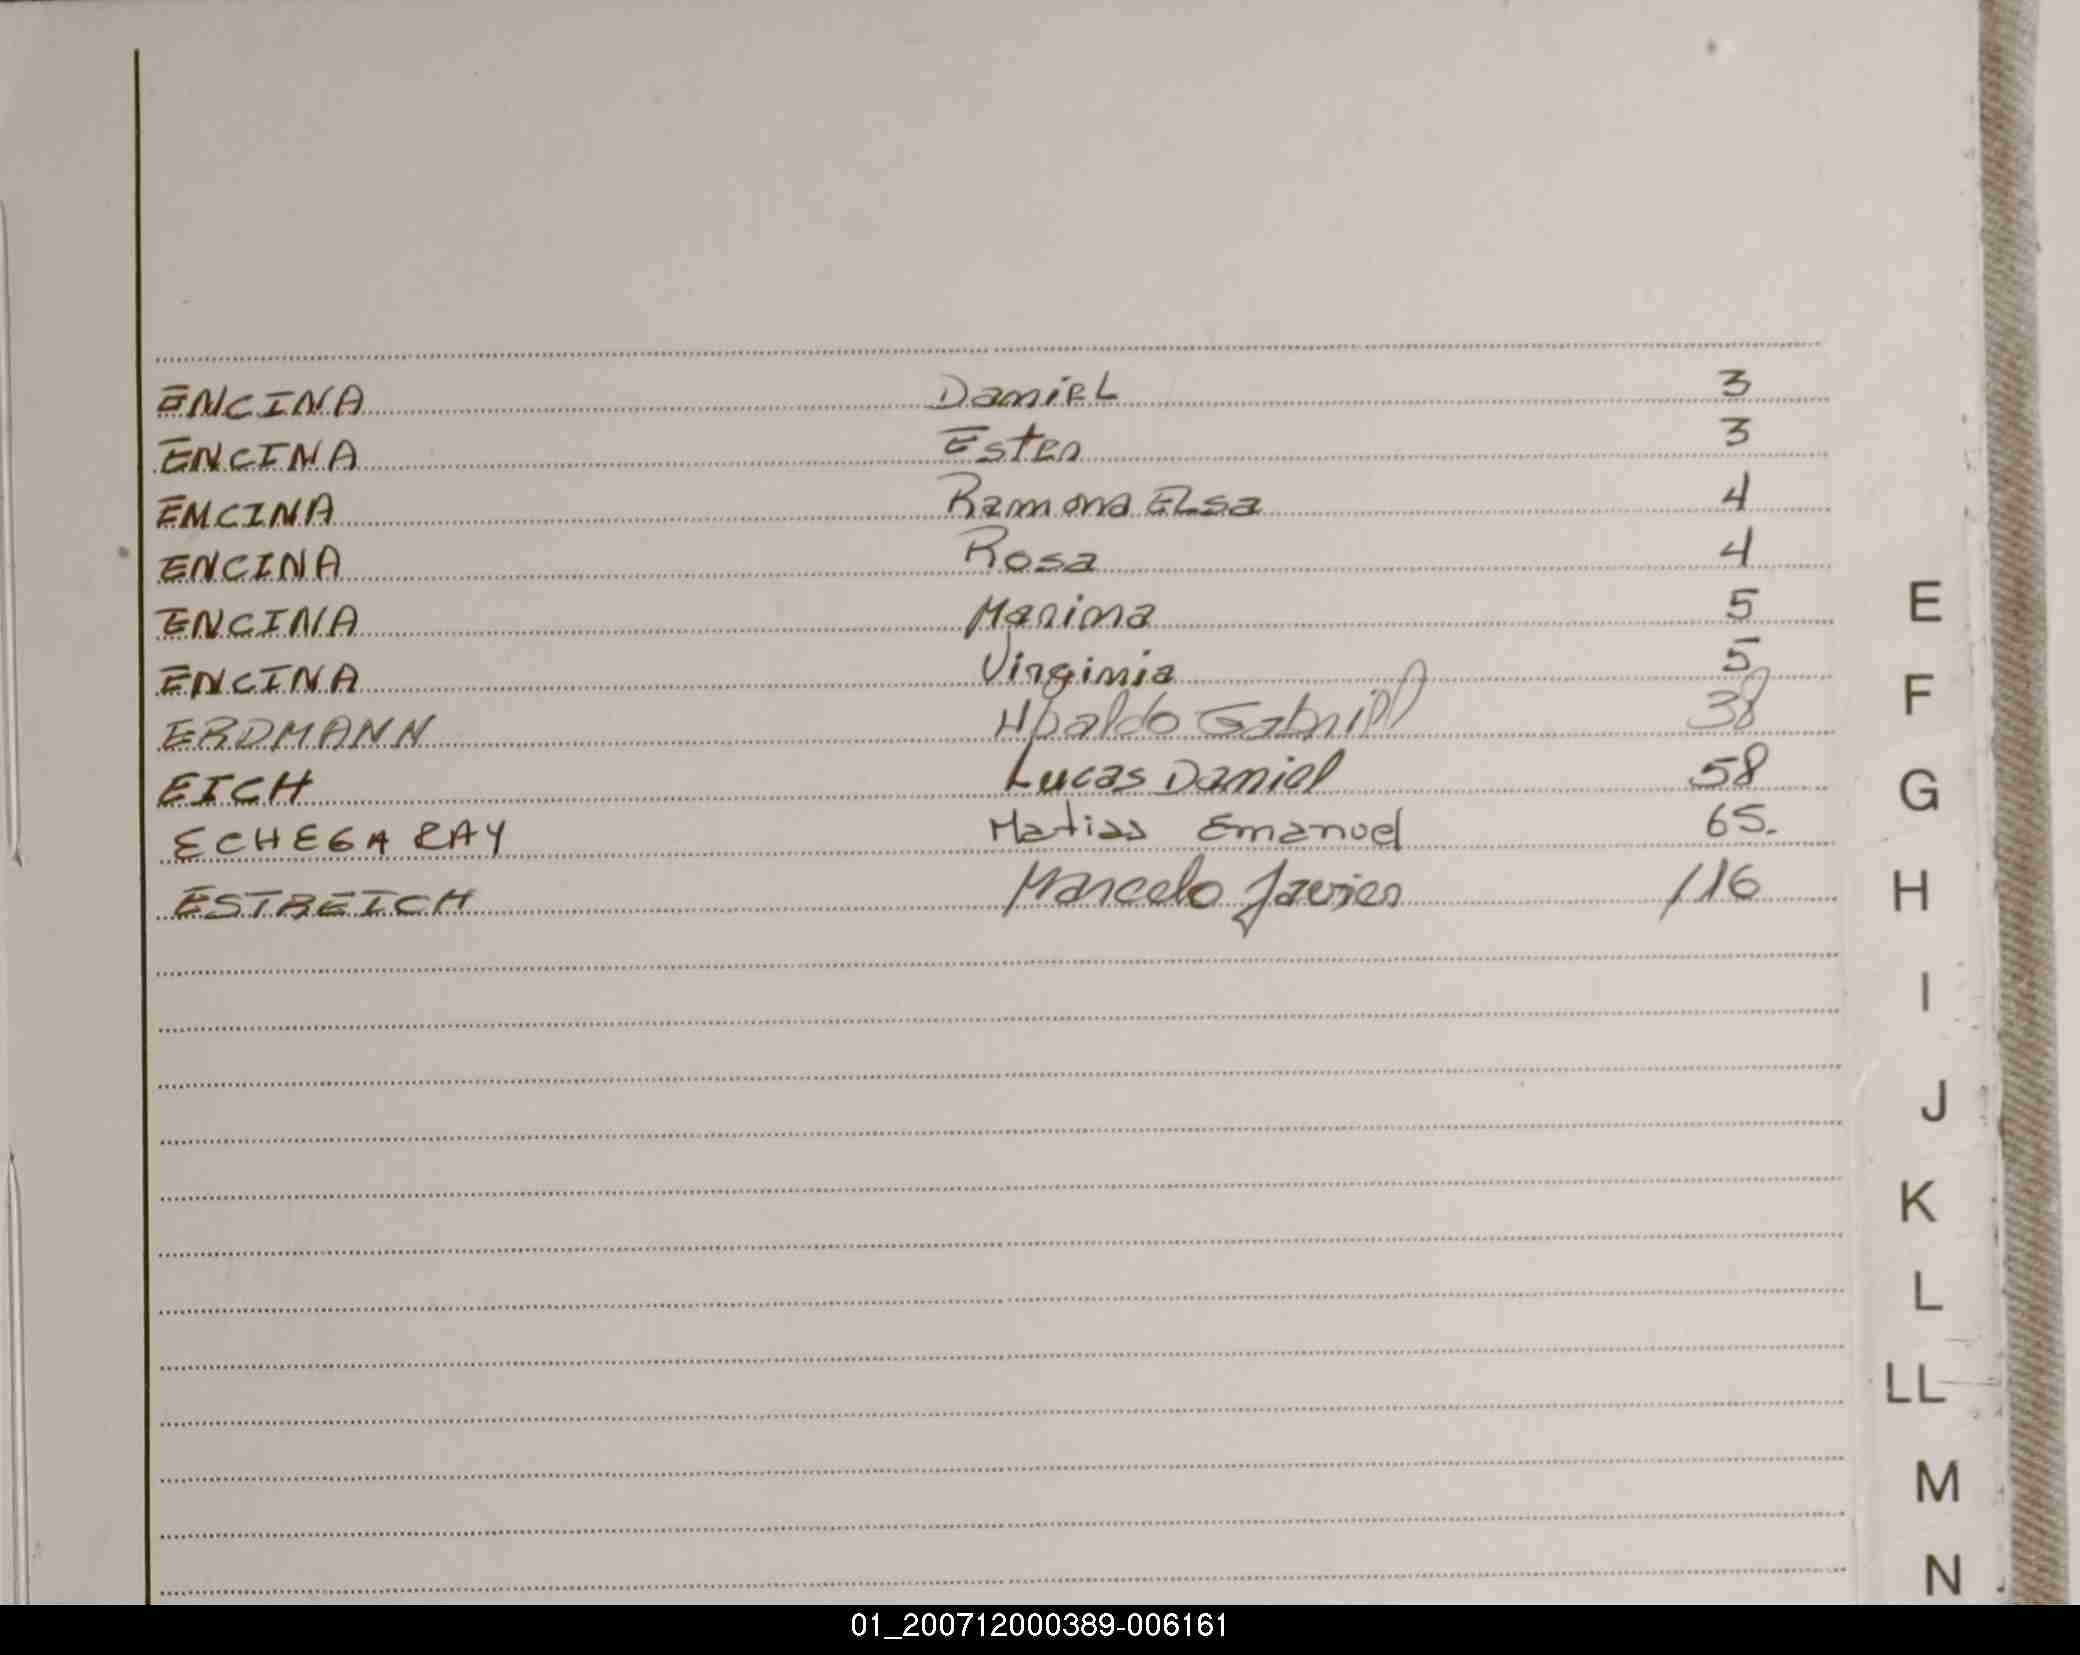 ENCINA Daniel 3
ENCINA Ester 3
ENCINA Ramona Elsa 4
ENCINA Rosa 4
ENCINA Marina 5
ENCINA Virginia 5
ERDMANN Ubaldo Gabriel 38
EICH Lucas Daniel 58
ECHEGARAY Matias Emanuel 65.
ESTREICH Marcelo Javier 116
E
F
G
H
I
J
K
L
LL
M
N
01_200712000389-006161